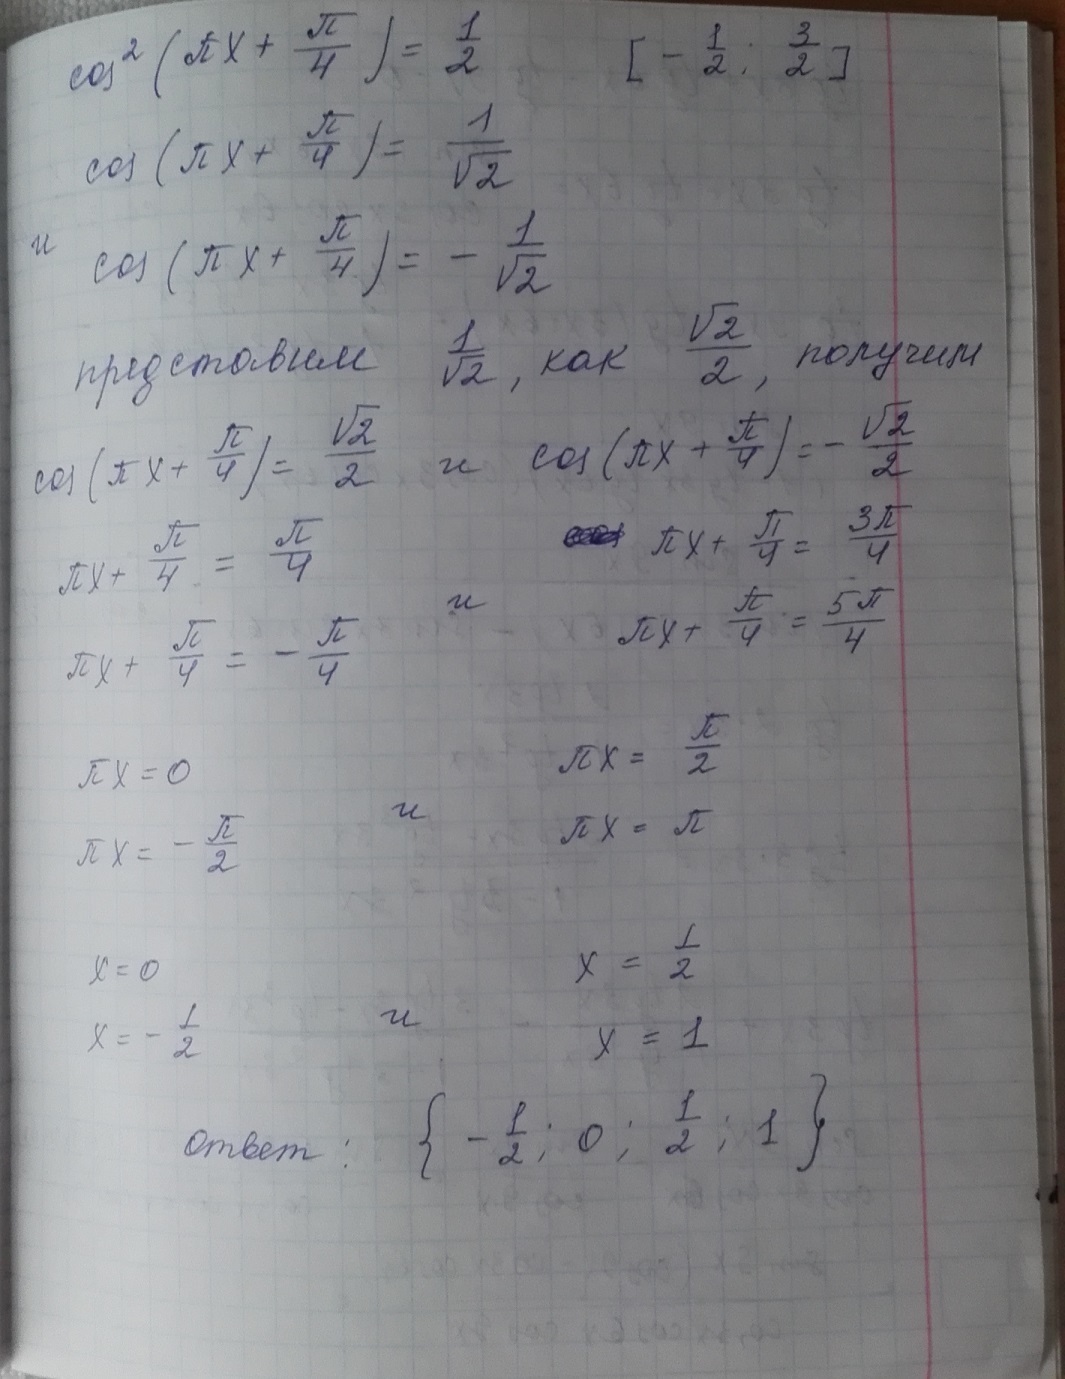 cos²(πx + π/4) = 1/2 [-1/2; 3/2]
cos(πx + π/4) = 1/√2
и cos(πx + π/4) = -1/√2
представим 1/√2, как √2/2, получим
cos(πx + π/4) = √2/2 и cos(πx + π/4) = -√2/2
πx + π/4 = π/4 πx + π/4 = 3π/4
πx + π/4 = -π/4 и πx + π/4 = 5π/4
πx = 0 πx = π/2
πx = -π/2 и πx = π
x = 0 x = 1/2
x = -1/2 и x = 1
ответ: {-1/2; 0; 1/2; 1}